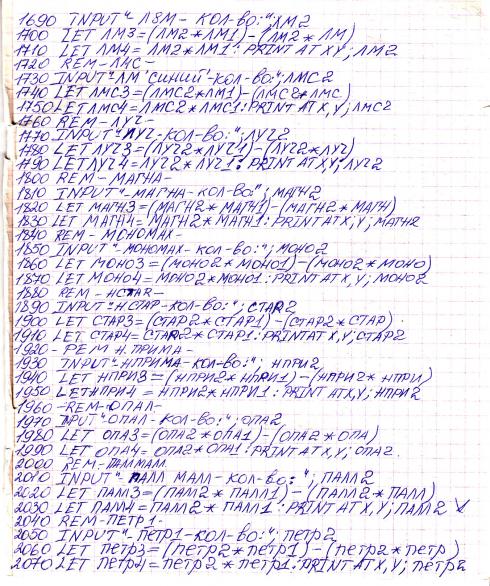 1690 INPUT"-Л8М- КОЛ-ВО:";ЛМ2
1700 LET ЛМ3=(ЛМ2*ЛМ1)-(ЛМ2*ЛМ)
1710 LET ЛМ4=ЛМ2*ЛМ1:PRINT AT X,Y;ЛМ2
1720 REM-ЛМС-
1730 INPUT"ЛМ"СИНИЙ"-КОЛ-ВО:";ЛМС2
1740 LET ЛМС3=(ЛМС2*ЛМ1)-(ЛМС2*ЛМС)
1750 LET ЛМС4=ЛМС2*ЛМС1:PRINT AT X,Y;ЛМС2
1760 REM-ЛУЧ-
1770 INPUT"ЛУЧ-КОЛ-ВО:";ЛУЧ2
1780 LET ЛУЧ3=(ЛУЧ2*ЛУЧ1)-(ЛУЧ2*ЛУЧ)
1790 LET ЛУЧ4=ЛУЧ2*ЛУЧ1:PRINT AT X,Y;ЛУЧ2
1800 REM-МАГНА-
1810 INPUT"-МАГНА-КОЛ-ВО:";МАГН2
1820 LET МАГН3=(МАГН2*МАГН1)-(МАГН2*МАГН)
1830 LET МАГН4=МАГН2*МАГН1:PRINT AT X,Y;МАГН2
1840 REM-МОНОМАХ-
1850 INPUT"-МОНОМАХ-КОЛ-ВО:";МОНО2
1860 LET МОНО3=(МОНО2*МОНО1)-(МОНО2*МОНО)
1870 LET МОНО4=МОНО2*МОНО1:PRINT AT X,Y;МОНО2
1880 REM-НСТАR-
1890 INPUT"НСТАР-КОЛ-ВО:";СТАR2
1900 LET СТАР3=(СТАР2*СТАР1)-(СТАР2*СТАР)
1910 LET СТАР4=СТАR2*СТАР1:PRINT AT X,Y;СТАР2
1920-РЕМ Н.ПРИМА-
1930 INPUT"НПРИМА-КОЛ-ВО:";НПРИ2
1940 LET НПРИ3=(НПРИ2*НПРИ1)-(НПРИ2*НПРИ)
1950 LET НПРИ4=НПРИ2*НПРИ1:PRINT AT X,Y;НПРИ2
1960-REM-ОПАЛ-
1970 INPUT"-ОПАЛ-КОЛ-ВО:";ОПА2
1980 LET ОПА3=(ОПА2*ОПА1)-(ОПА2*ОПА)
1990 LET ОПА4=ОПА2*ОПА1:PRINT AT X,Y;ОПА2.
2000 REM-ПАЛЛМАЛЛ
2010 INPUT"-ПАЛЛ МАЛЛ-КОЛ-ВО:";ПАЛЛ2
2020 LET ПАМ3=(ПАМ2*ПАЛЛ1)-(ПАЛЛ2*ПАЛЛ)
2030 LET ПАМ4=ПАМ2*ПАЛЛ1:PRINT AT X,Y;ПАЛЛ2 ✓
2040 REM-ПЕТР1-
2050 INPUT"-ПЕТР1-КОЛ-ВО:";ПЕТР2
2060 LET ПЕТР3=(ПЕТР2*ПЕТР1)-(ПЕТР2*ПЕТР)
2070 LET ПЕТР4=ПЕТР2*ПЕТР1:PRINT AT X,Y;ПЕТР2